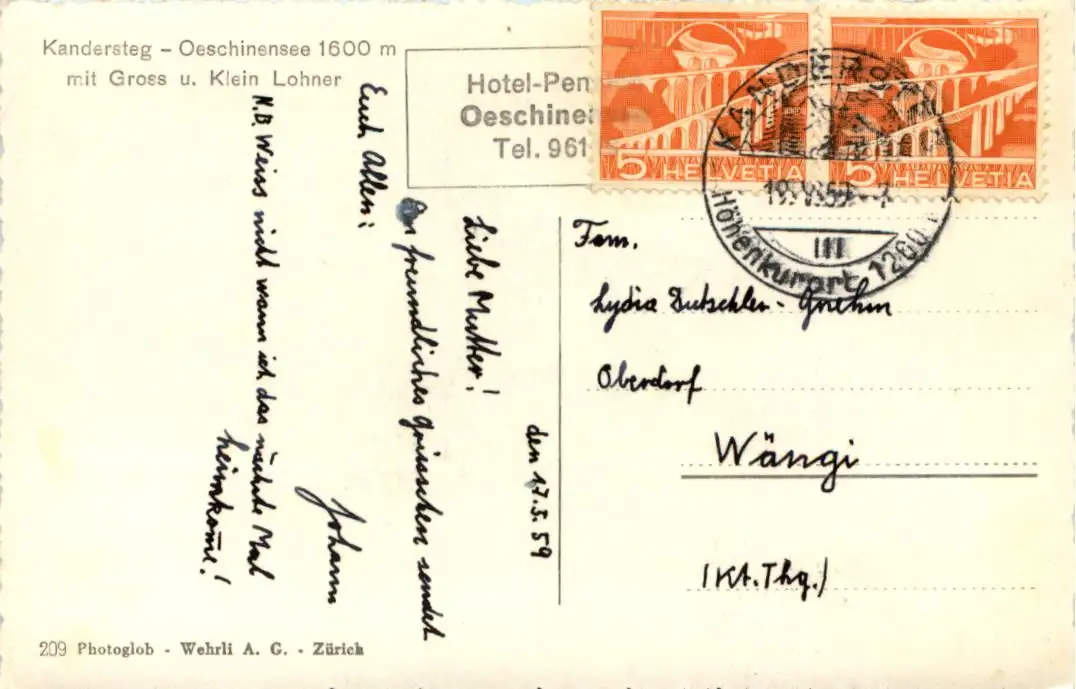 Kandersteg - Oeschinensee 1600 m
mit Gross u. Klein Lohner
Hotel-Pen
Oeschinen
Tel. 961
5 HELVETIA
5 HELVETIA
KANDERSTEG
19. V. 59 - 7
III
Höhenkurort 1200
den 17.5.59
Liebe Mutter!
Ein freundliches Grüsschen sendet
Euch Allen:
Johann
N.B. Weiss nicht wann ich das nächste Mal
heimkom̅e!
Fam.
Lydia Dutschler-Gnehm
Oberdorf
Wängi
(Kt. Thg.)
209 Photoglob - Wehrli A. G. - Zürich